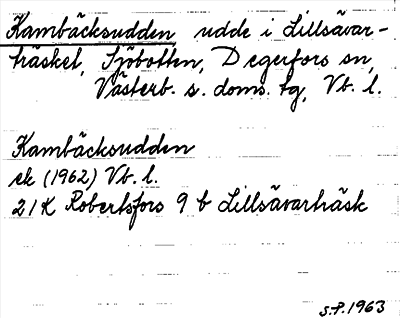 Kambäcksudden udde i Lillsävar-
träsket, Sjöbotten, Degerfors sn,
Västerb. s. doms. tg, Vb. l.
Kambäcksudden
ek (1962) Vb. l.
21K Robertsfors 9 b Lillsävarträsk
S.P. 1963